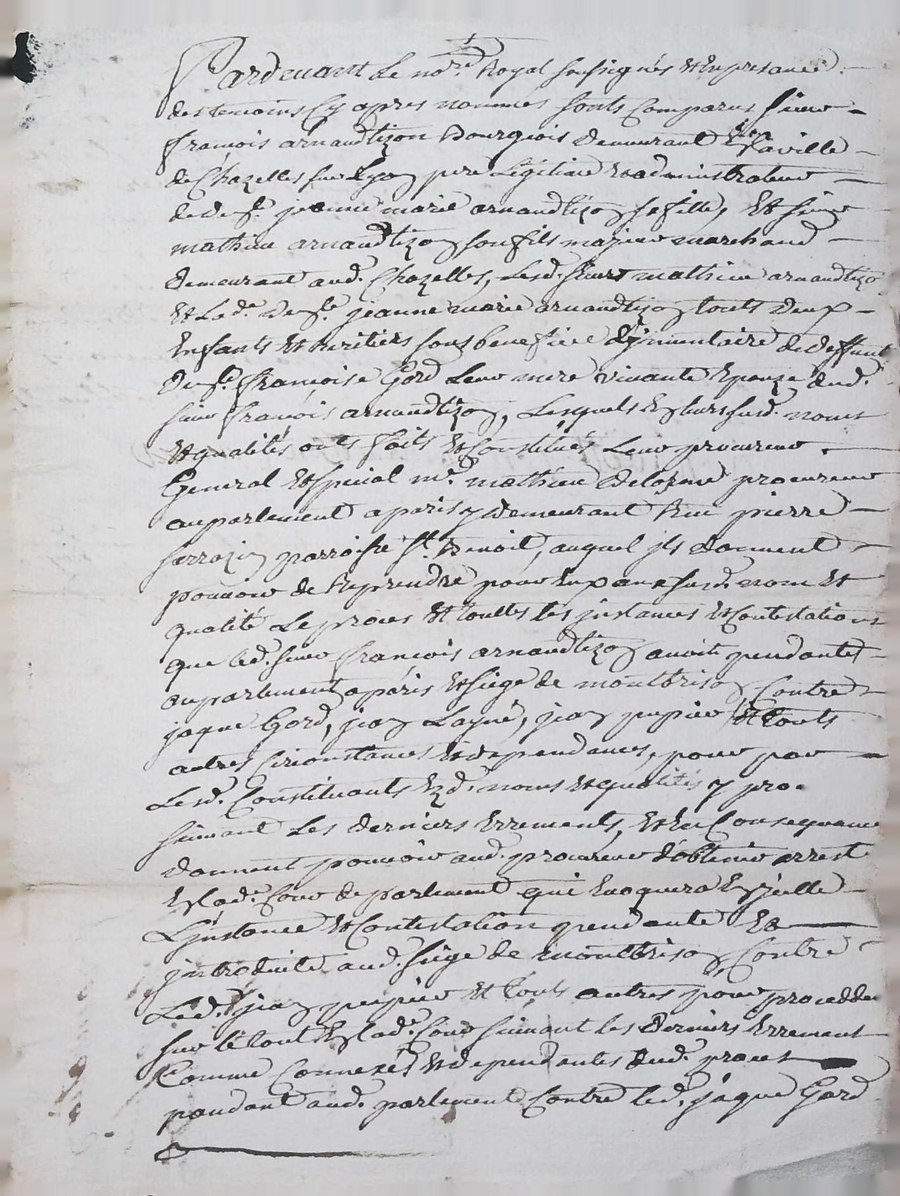 Pardevant Le no.re Royal soussignés et En presance
des temoins Cy apres nommés sonts Comparus sieur
francois arnaudtizon Bourgeois Demeurant En la ville
de Chazelles sur Lyon pere Légitime et administrateur
de de.lle jeanne marie arnaudtizon sa fille, Et sieur
mathieu arnaudtizon son fils majeur marchand
demeurant aud. Chazelles, Lesd. sieur mathieu arnaudtizon
et Lad.e De.lle jeanne marie arnaudtizon touts Deux
Enfants et heritiers sous benefice D'jnventaire de deffunte
De.lle françoise Gord Leur mere vivante Epouze dud.
sieur francois arnaudtizon, Lesquels En leurs susd. noms
et qualités onts faits et Constitués Leur procureur
General et special m.e mathieu Delorme procureur
au parlement a paris y Demeurant Rue pierre
sarrazin parroisse St. Benoit, auquel jls donnent
pouvoir de Reprendre pour Eux aux susd. nom et
qualité Le proces et touttes les jnstances et Contestations
que led. sieur francois arnaudtizon avoit pendantes
au parlement a paris et siege de montbrison, Contre
jaque Gord, jean Layné, jean pupier et touts
autres Circonstances et dependances, pour par
Lesd. Constituants Ezd. noms et qualités y pro-
suivant Les Derniers Errements, et En Consequance
donnent pouvoir aud. procureur d'obtenir arrest
En lad.e Cour de parlement qui Evoquera En jcelle
L'jnstance et Contestation pendante Et
jntroduite aud. siege de montbrison, Contre
Led. jean pupier et touts autres pour procedder
sur le tout En lad.e Cour suivant les Derniers Errement
Comme Connexes et dependantes dud. proces
pandant aud. parlement Contre led. jaque Gord